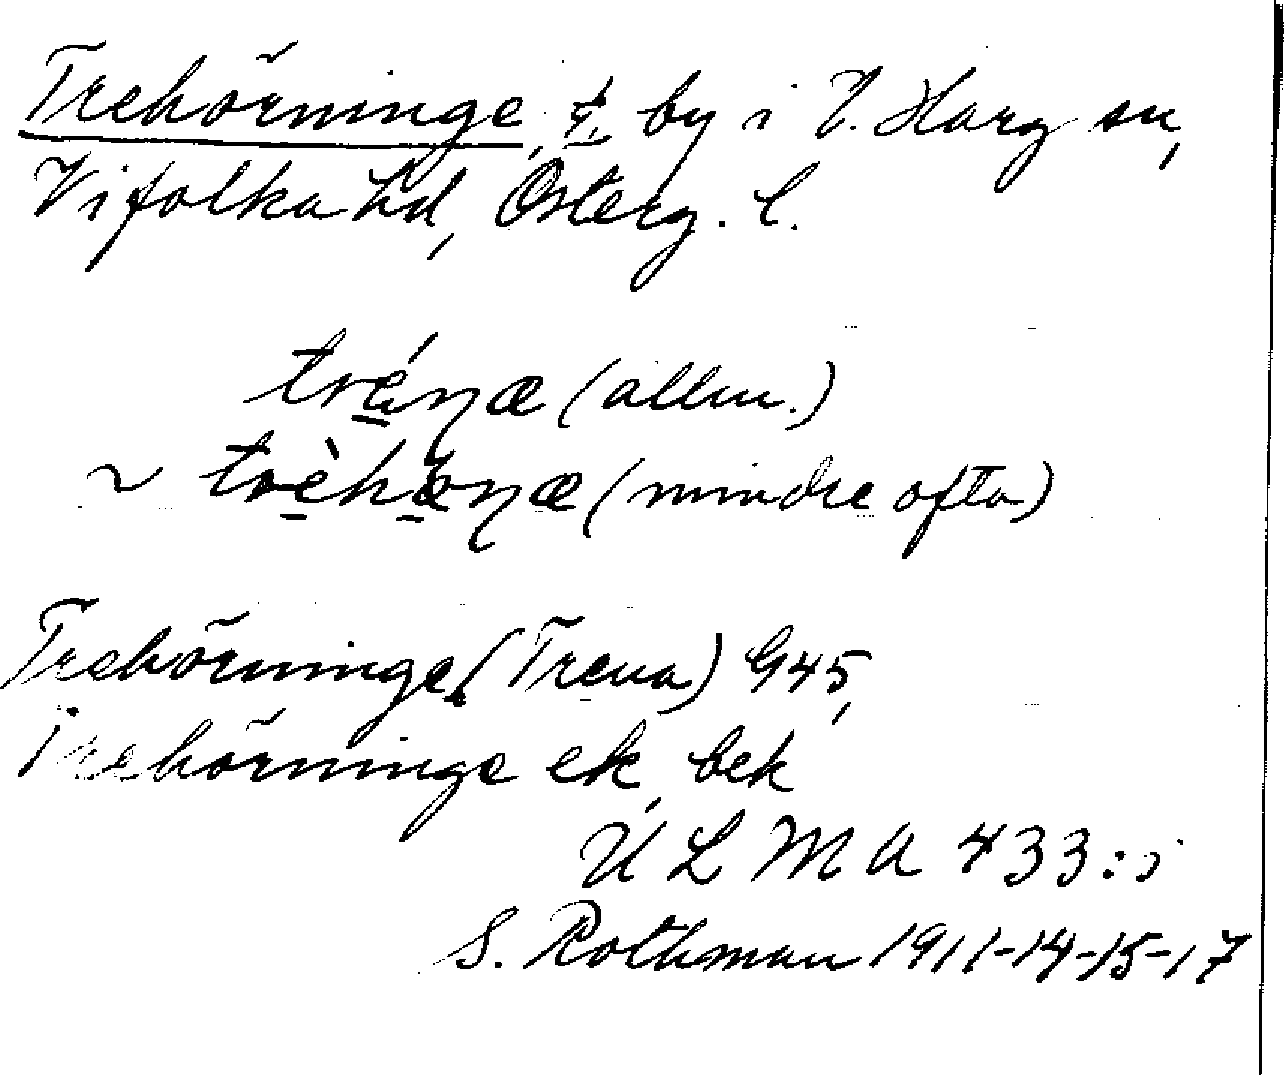 Trehörninge, by i V. Harg sn,
Vifolka hd, Österg. l.
tréŋæ (allm.)
~ trèhæŋæ (mindre ofta)
Trehörninge (Trena) G45,
Trehörninge ek, bek
ULMA 433:i
S. Rothman 1911-14-15-17